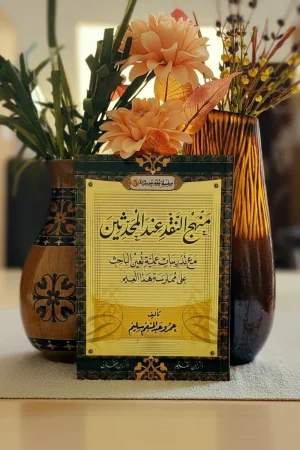 منهج النقد عند المحدثين
مع تدريبات عملية تعين الباحث
على ممارسة هذا العلم
تأليف
عمرو عبد المنعم سليم